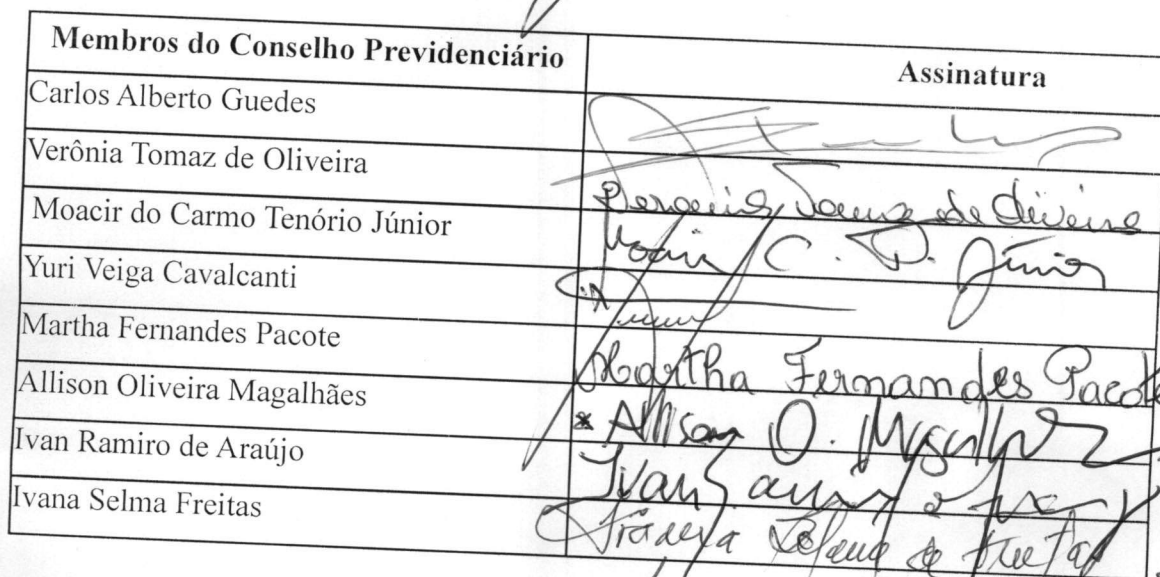 Membros do Conselho Previdenciário Assinatura
Carlos Alberto Guedes
Verônia Tomaz de Oliveira
de Oliveira
Moacir do Carmo Tenório Júnior
Moacir C. T. Júnior
Yuri Veiga Cavalcanti
Martha Fernandes Pacote
Martha Fernandes Pacote
Allison Oliveira Magalhães
* Allison O. Magalhães
Ivan Ramiro de Araújo
Ivan
Ivana Selma Freitas
de Freitas